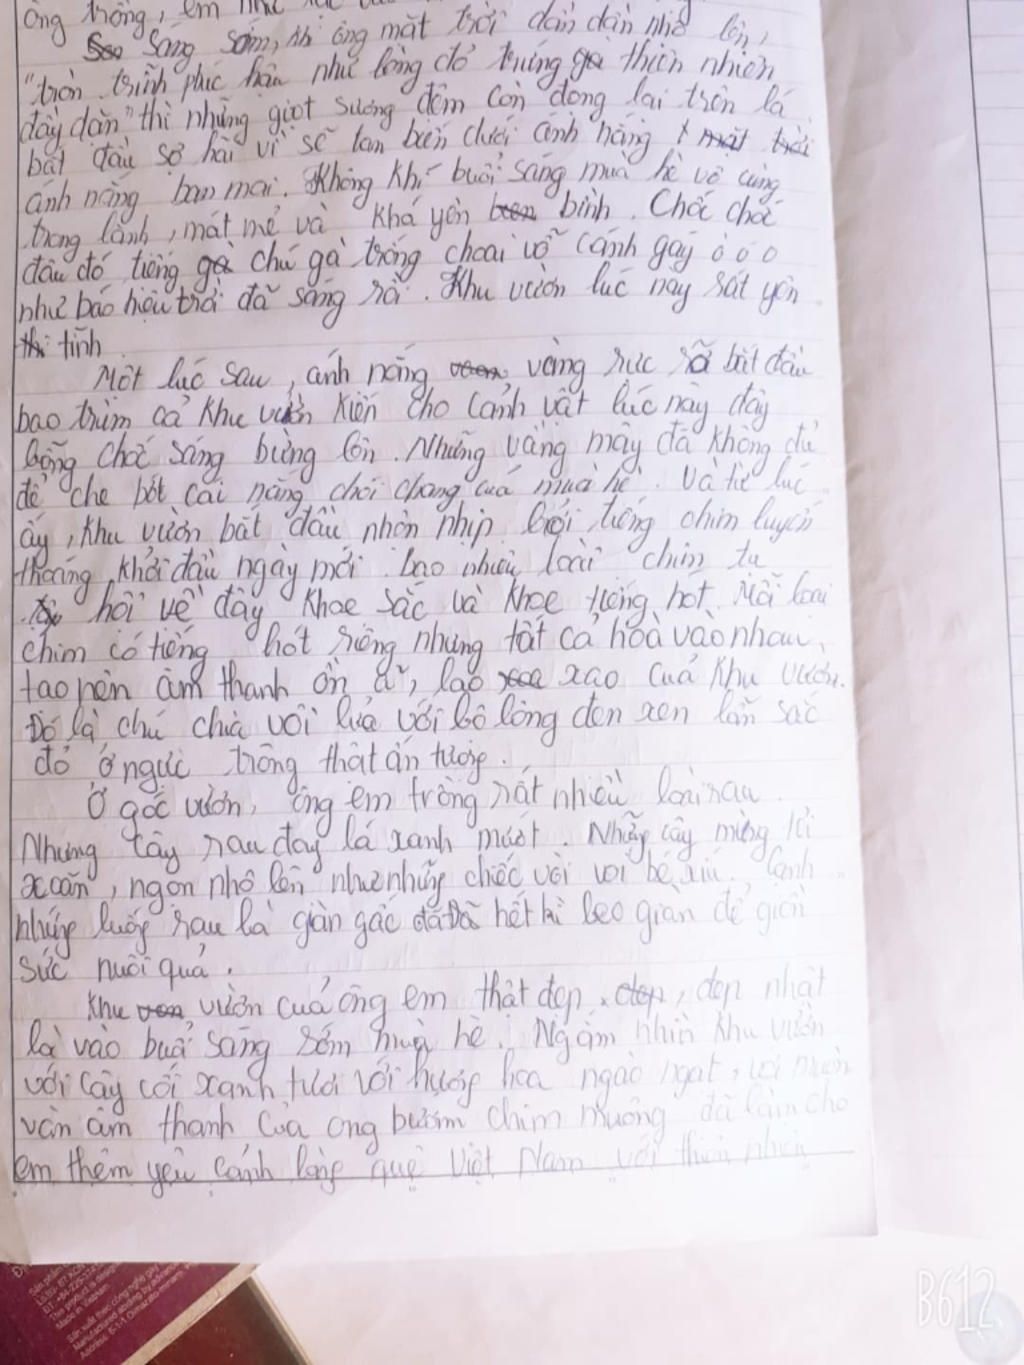 ông trồng, em như
Sáng sớm, khi ông mặt trời dần dần nhô lên,
"tròn trĩnh phúc hậu như lòng đỏ trứng gà thiên nhiên
đầy dặn" thì những giọt sương đêm còn đọng lại trên lá
bắt đầu sợ hãi vì sẽ tan biến dưới ánh nắng mặt trời
ánh nắng ban mai. Không khí buổi sáng mùa hè vô cùng
trong lành, mát mẻ và khá yên bình. Chốc chốc
đâu đó tiếng gà chú gà trống choai vỗ cánh gáy ò ó o
như báo hiệu trời đã sáng rồi. Khu vườn lúc này rất yên
tĩnh
Một lúc sau, ánh nắng vàng rực rỡ bắt đầu
bao trùm cả khu vườn kiến cho cảnh vật lúc này đây
bỗng chốc sáng bừng lên. Những vầng mây đã không đủ
để che bớt cái nắng chói chang của mùa hè. Và từ lúc
ấy, khu vườn bắt đầu nhộn nhịp bởi tiếng chim luyến
thoáng, khởi đầu ngày mới. bao nhiêu loài chim tụ
hội về đây khoe sắc và khoe tiếng hót. Mỗi loài
chim có tiếng hót riêng nhưng tất cả hoà vào nhau,
tạo nên âm thanh ồn ã, lao xao của khu vườn.
Đó là chú chìa vôi lửa với bộ lông đen xen lẫn sắc
đỏ ở ngực trông thật ấn tượng.
Ở góc vườn, ông em trồng rất nhiều loài rau.
Những cây rau đay lá xanh mướt. Những cây mùng tơi
xoăn, ngọn nhô lên như những chiếc vòi voi bé xíu. Cạnh
những luống rau là giàn gấc đã hết kì leo giàn để giồn
sức nuôi quả.
Khu vườn của ông em thật đẹp, đẹp nhất
là vào buổi sáng sớm mùa hè. Ngắm nhìn khu vườn
với cây cối xanh tươi với hương hoa ngào ngạt, với muôn
vàn âm thanh của ong bướm chim muông đã làm cho
em thêm yêu cảnh làng quê Việt Nam với thiên nhiên
Made in Vietnam
B612